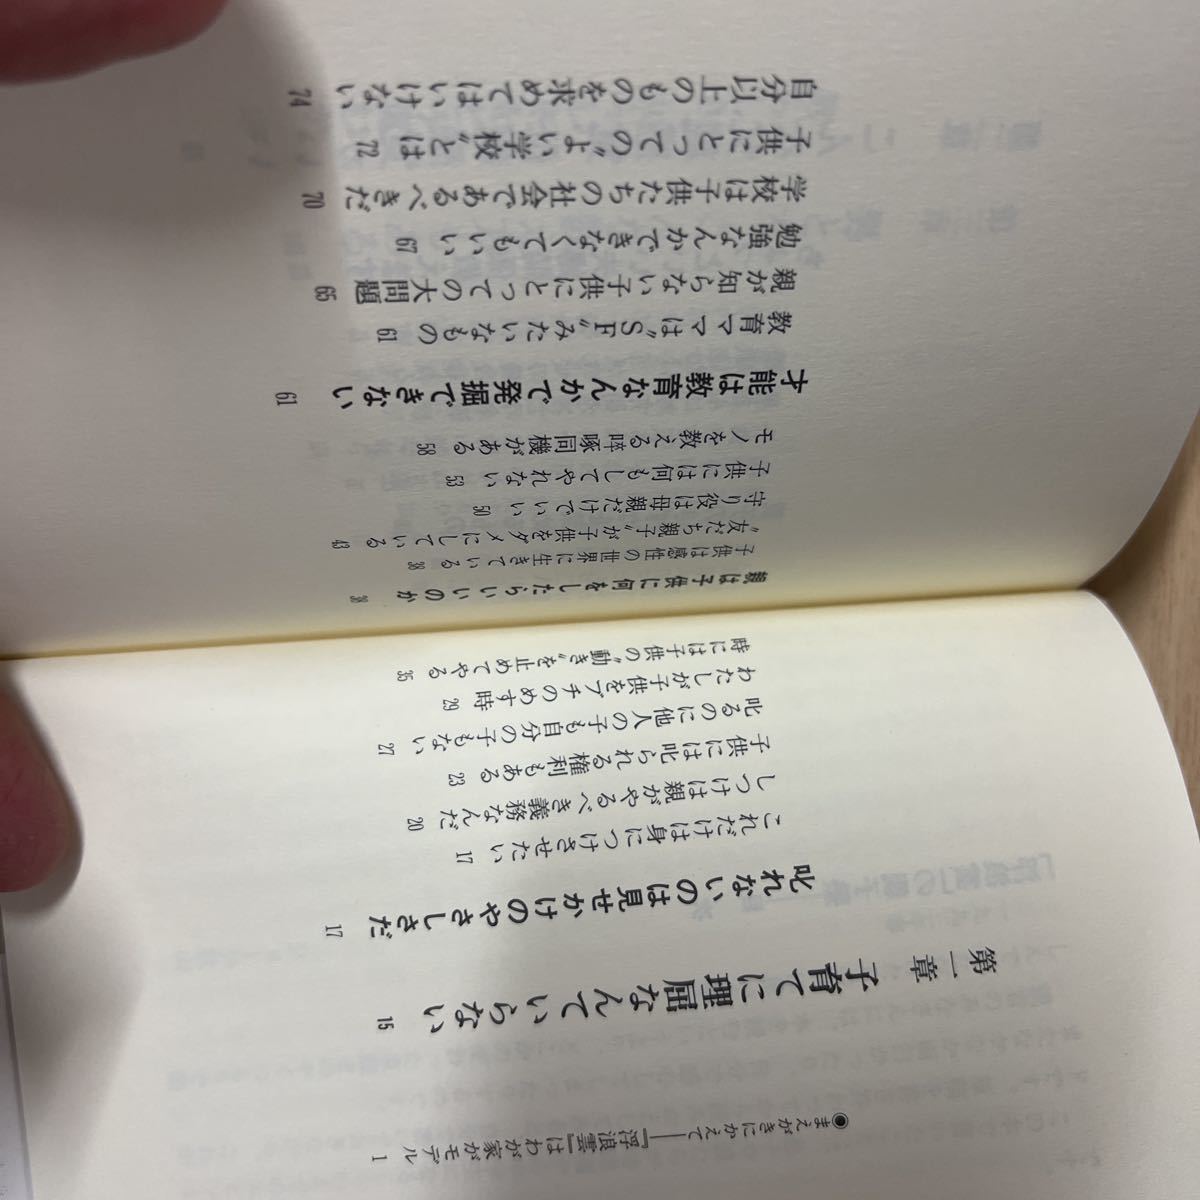 ◉まえがきにかえて——『浮浪雲』はわが家がモデル 1
第一章 子育てに理屈なんていらない 15
叱れないのは見せかけのやさしさだ 17
これだけは身につけさせたい 17
しつけは親がやるべき義務なんだ 20
子供には叱られる権利もある 23
叱るのに他人の子も自分の子もない 27
わたしが子供をブチのめす時 29
時には子供の〝動き〟を止めてやる 35
親は子供に何をしたらいいのか 38
子供は感性の世界に生きている 38
〝友だち親子〟が子供をダメにしている 43
守り役は母親だけでいい 50
子供には何もしてやれない 53
モノを教える啐啄同機がある 58
才能は教育なんかで発掘できない 61
教育ママは〝SF〟みたいなもの 61
親が知らない子供にとっての大問題 65
勉強なんかできなくてもいい 67
学校は子供たちの社会であるべきだ 70
子供にとっての〝よい学校〟とは 72
自分以上のものを求めてはいけない 74